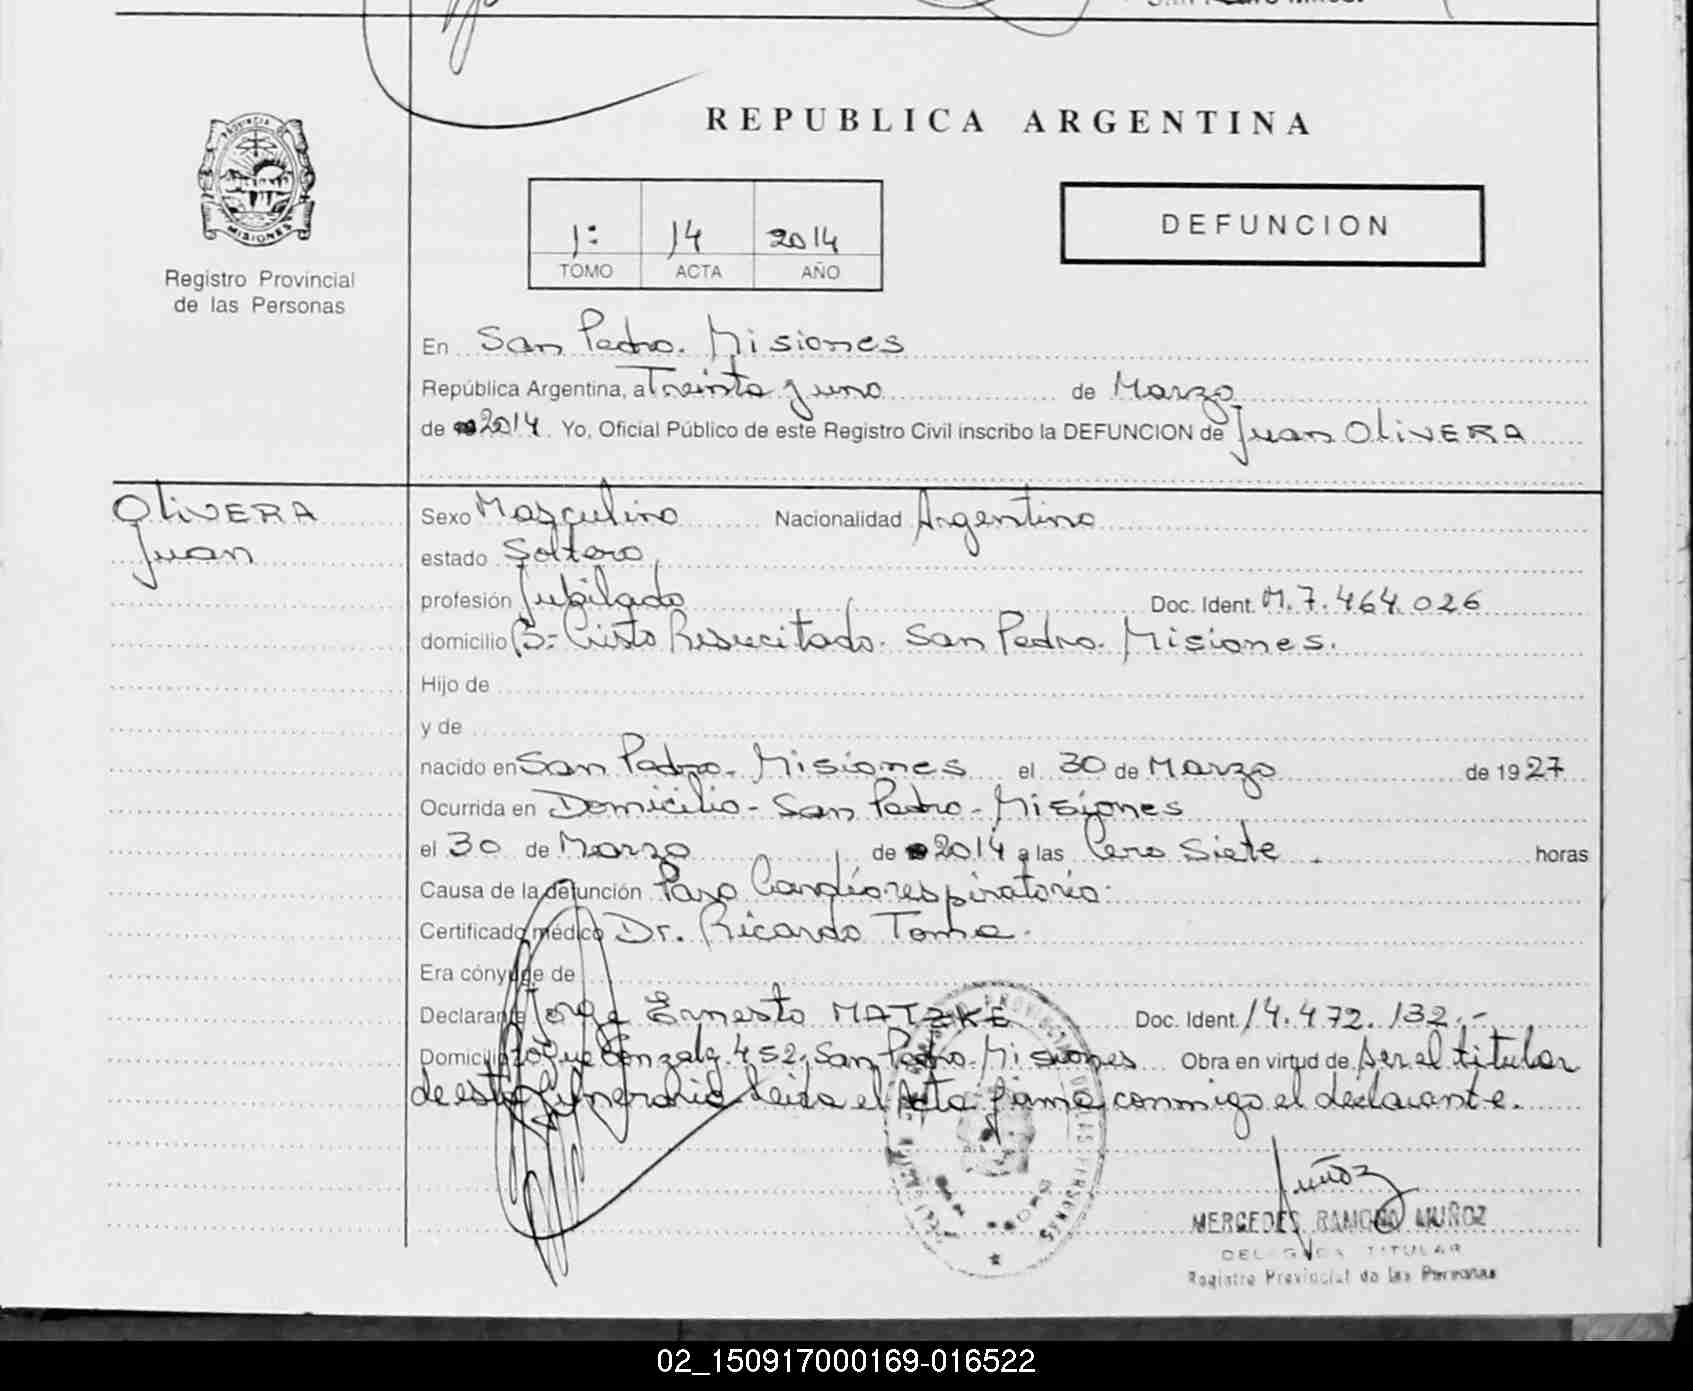 REPUBLICA ARGENTINA
PROVINCIA DE
MISIONES
Registro Provincial
de las Personas
1: 14 2014
TOMO ACTA AÑO
DEFUNCION
En San Pedro. Misiones
República Argentina, a Treinta y uno de Marzo
de 2014. Yo, Oficial Público de este Registro Civil inscribo la DEFUNCION de Juan OliVERA
OliVERA
Juan
Sexo Masculino Nacionalidad Argentino
estado Soltero
profesión Jubilado Doc. Ident. M. 7.464.026
domicilio B:- Cristo Resucitado. San Pedro. Misiones.
Hijo de
y de
nacido en San Pedro. Misiones el 30 de Marzo de 1927
Ocurrida en Domicilio - San Pedro - Misiones
el 30 de Marzo de 2014 a las Cero Siete . horas
Causa de la defunción Paro Cardiorespiratorio.
Certificado médico Dr. Ricardo Toma.
Era cónyuge de
Declarante Jorge Ernesto MATZKE Doc. Ident. 14.472.132.-
Domicilio Roque Gonzalez. 452. San Pedro. Misiones Obra en virtud de ser el titular
de esta funeraria leida el Acta firma conmigo el declarante.
Muñoz
MERCEDES RAMONA MUÑOZ
DELEGADA TITULAR
Registro Provincial de las Personas
02_150917000169-016522